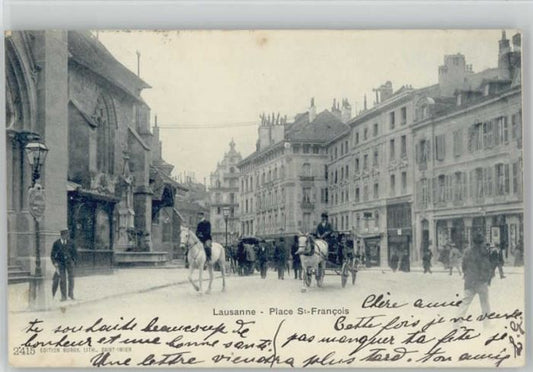 Lausanne - Place St-François
Chère amie
te souhaite beaucoup de
Cette fois je ne veux
bonheur et une bonne santé
pas manquer ta fête. Je
2415 EDITION BURGY, LITH., SAINT-IMIER
Une lettre viendra plus tard. Ton amie